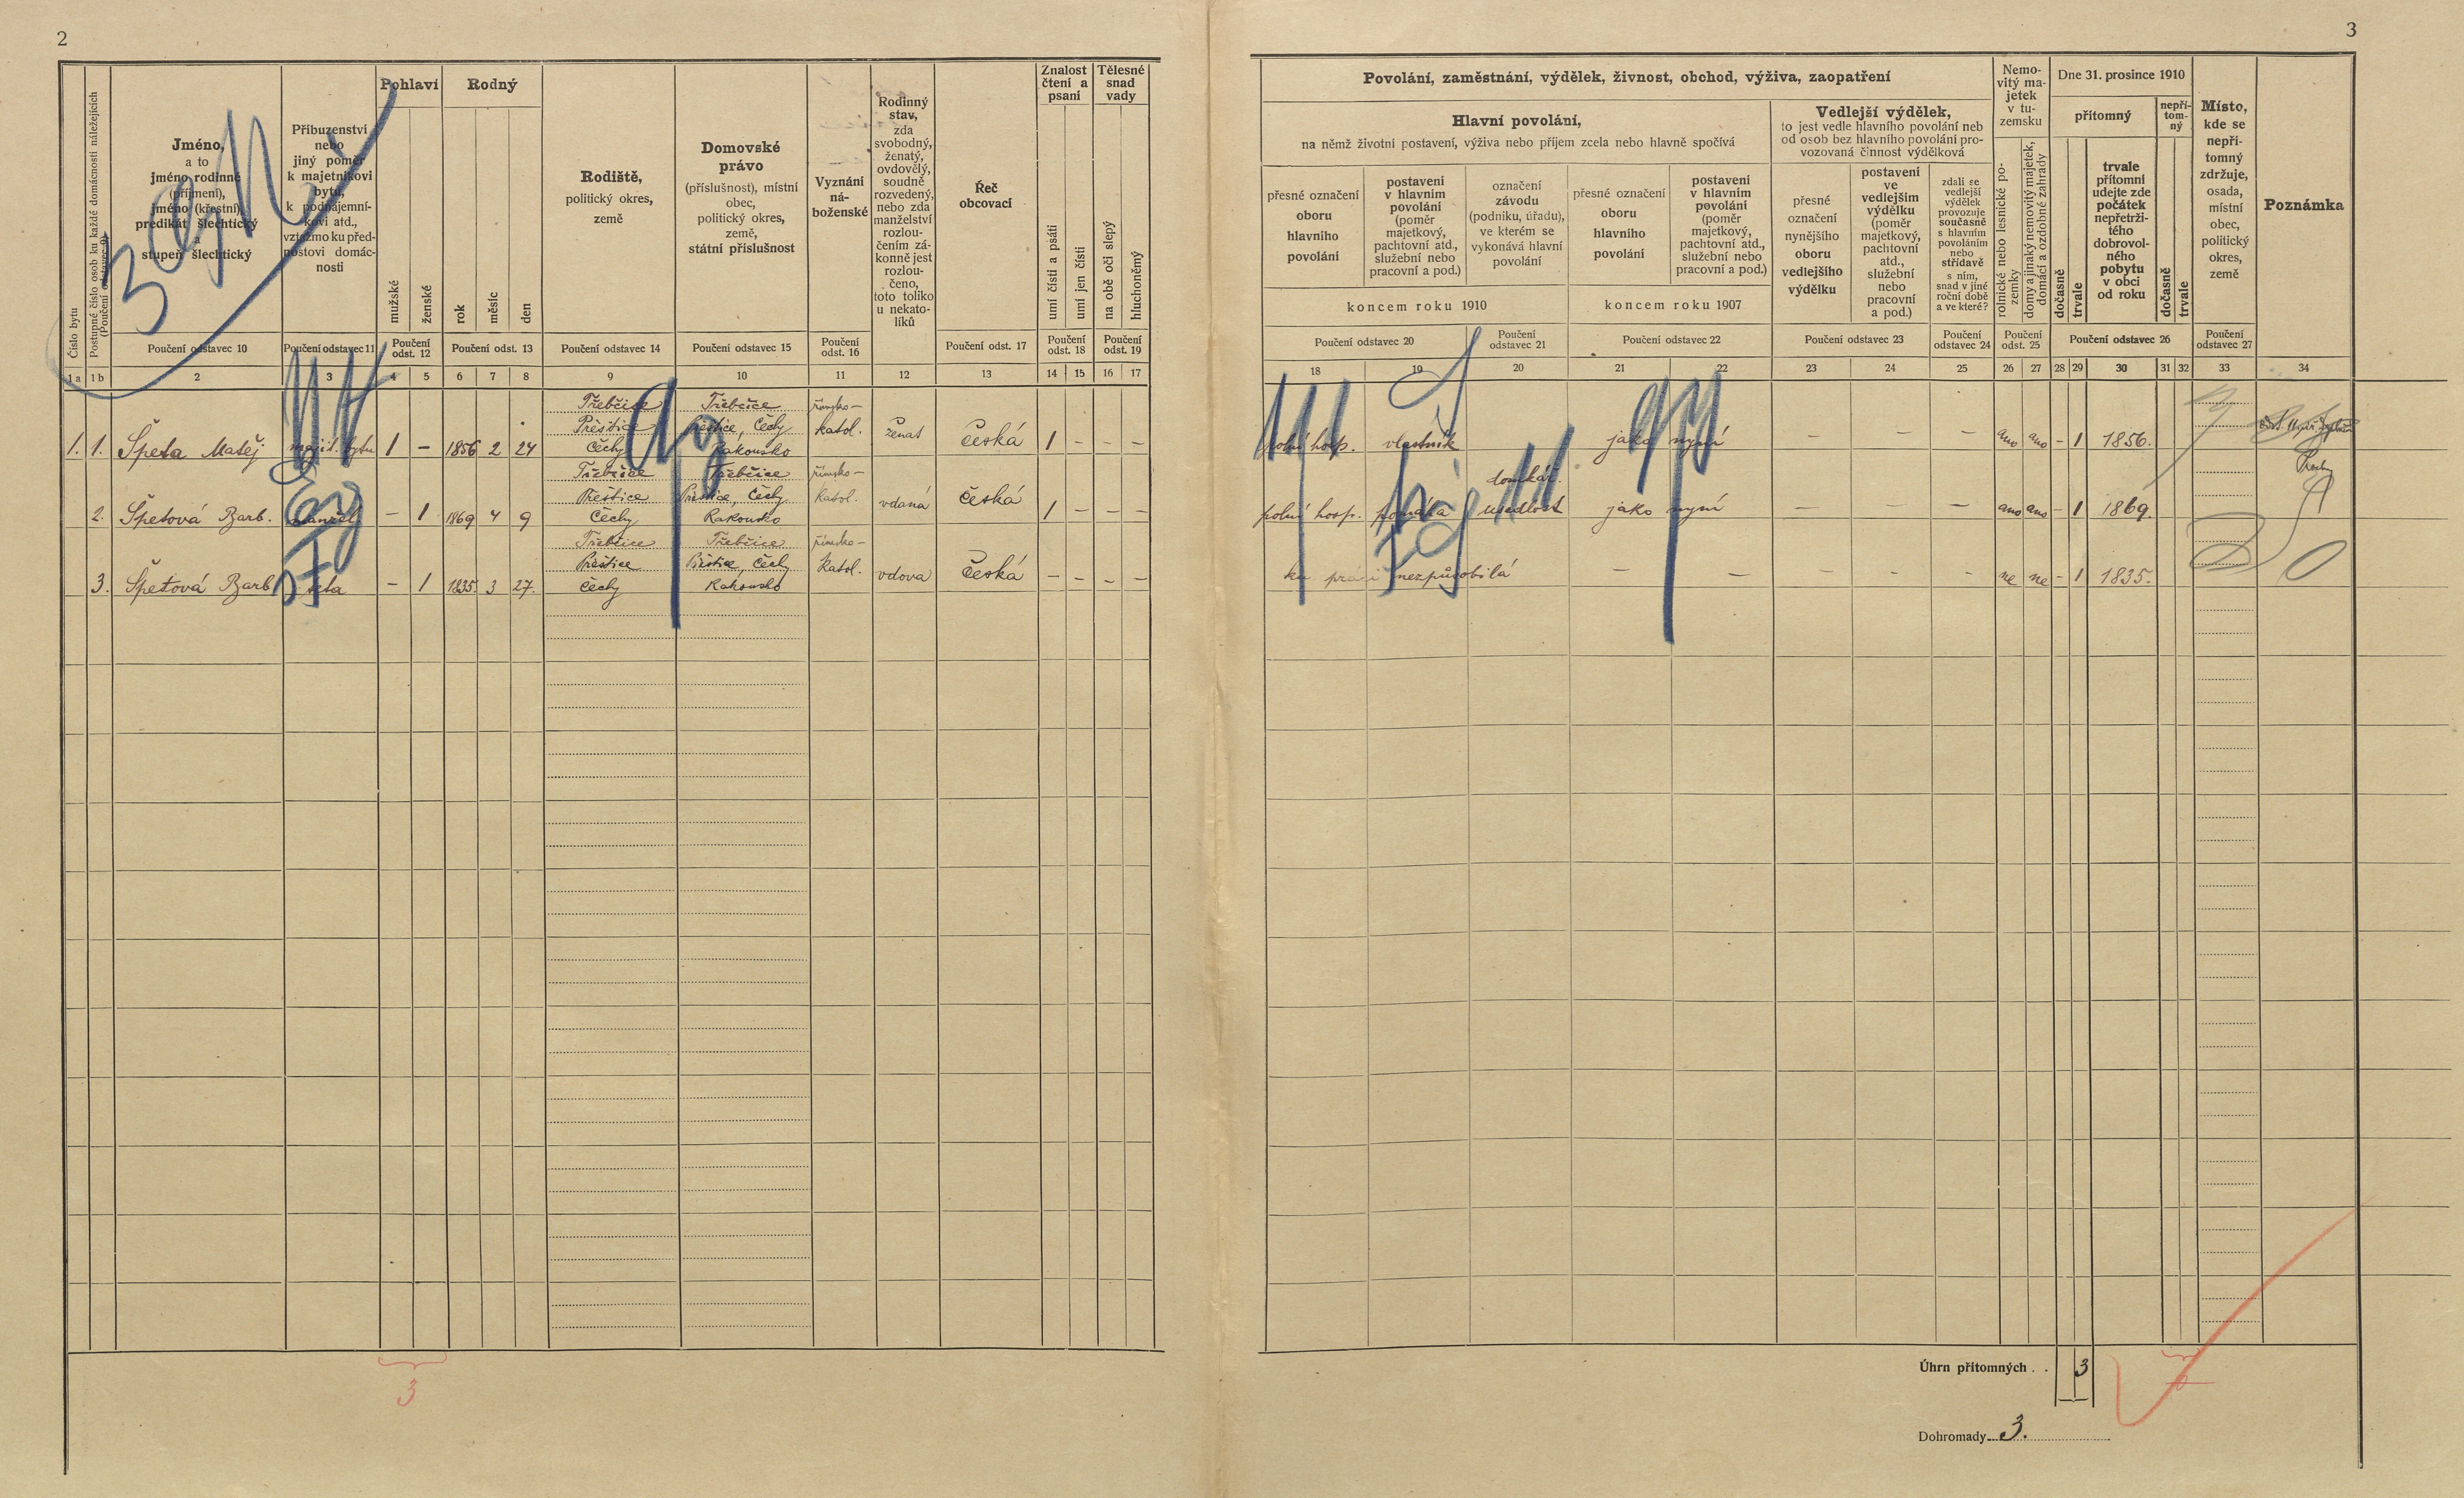 2
3
Číslo bytu
Postupné číslo osob ku každé domácnosti náležejících
(Poučení odstavec 9)
Jméno,
a to
jméno rodinné
(příjmení),
jméno (křestní),
predikát šlechtický
a
stupeň šlechtický
Příbuzenství
nebo
jiný poměr
k majetníkovi
bytu,
k podnájemní-
kovi atd.,
vztažmo ku před-
nostovi domác-
nosti
Pohlaví
mužské
ženské
Rodný
rok
měsíc
den
Rodiště,
politický okres,
země
Domovské
právo
(příslušnost), místní
obec,
politický okres,
země,
státní příslušnost
Vyznání
ná-
boženské
Rodinný
stav,
zda
svobodný,
ženatý,
ovdovělý,
soudně
rozvedený,
nebo zda
manželství
rozlou-
čením zá-
konně jest
rozlou-
čeno,
toto toliko
u nekato-
líků
Řeč
obcovací
Znalost
čtení a
psaní
umí čísti a psáti
umí jen čísti
Tělesné
snad
vady
na obě oči slepý
hluchoněmý
Poučení odstavec 10
Poučení odstavec 11
Poučení
odst. 12
Poučení odst. 13
Poučení odstavec 14
Poučení odstavec 15
Poučení
odst. 16
Poučení odst. 17
Poučení
odst. 18
Poučení
odst. 19
1 a 1 b 2 3 4 5 6 7 8 9 10 11 12 13 14 15 16 17
Třebčice Třebčice římsko-
Přeštice Přeštice, Čechy katol.
1. 1. Špeta Matěj majit. bytu 1 – 1856 2 24 Čechy Rakousko ženat česká 1 – – –
Třebčice Třebčice římsko-
Přeštice Přeštice, Čechy katol.
2. Špetová Barb. manžel. – 1 1869 4 9 Čechy Rakousko vdaná česká 1 – – –
Třebčice Třebčice římsko-
Přeštice Přeštice, Čechy katol.
3. Špetová Barb. teta – 1 1835. 3 27. Čechy Rakousko vdova česká – – – –
3
Povolání, zaměstnání, výdělek, živnost, obchod, výživa, zaopatření
Hlavní povolání,
na němž životní postavení, výživa nebo příjem zcela nebo hlavně spočívá
přesné označení
oboru
hlavního
povolání
postavení
v hlavním
povolání
(poměr
majetkový,
pachtovní atd.,
služební nebo
pracovní a pod.)
označení
závodu
(podniku, úřadu),
ve kterém se
vykonává hlavní
povolání
koncem roku 1910
přesné označení
oboru
hlavního
povolání
postavení
v hlavním
povolání
(poměr
majetkový,
pachtovní atd.,
služební nebo
pracovní a pod.)
koncem roku 1907
Vedlejší výdělek,
to jest vedle hlavního povolání neb
od osob bez hlavního povolání pro-
vozovaná činnost výdělková
přesné
označení
nynějšího
oboru
vedlejšího
výdělku
postavení
ve
vedlejším
výdělku
(poměr
majetkový,
pachtovní
atd.,
služební
nebo
pracovní
a pod.)
zdali se
vedlejší
výdělek
provozuje
současně
s hlavním
povoláním
nebo
střídavě
s ním,
snad v jiné
roční době
a ve které?
Nemo-
vitý ma-
jetek
v tu-
zemsku
rolnické nebo lesnické po-
zemky
domy a jinaký nemovitý majetek,
domácí a ozdobné zahrady
Dne 31. prosince 1910
přítomný
dočasně
trvale
trvale
přítomní
udejte zde
počátek
nepřetrži-
tého
dobrovol-
ného
pobytu
v obci
od roku
nepří-
tom-
ný
dočasně
trvale
Místo,
kde se
nepří-
tomný
zdržuje,
osada,
místní
obec,
politický
okres,
země
Poznámka
Poučení odstavec 20
Poučení
odstavec 21
Poučení odstavec 22
Poučení odstavec 23
Poučení
odstavec 24
Poučení
odst. 25
Poučení odstavec 26
Poučení
odstavec 27
18 19 20 21 22 23 24 25 26 27 28 29 30 31 32 33 34
polní hosp. vlastník jako nyní – – – ano ano – 1 1856.
domkář.
polní hosp. pomáhá usedlost jako nyní – – – ano ano – 1 1869.
ku práci nezpůsobilá – – – – – ne ne – 1 1835.
Úhrn přítomných . . 3
Dohromady 3.